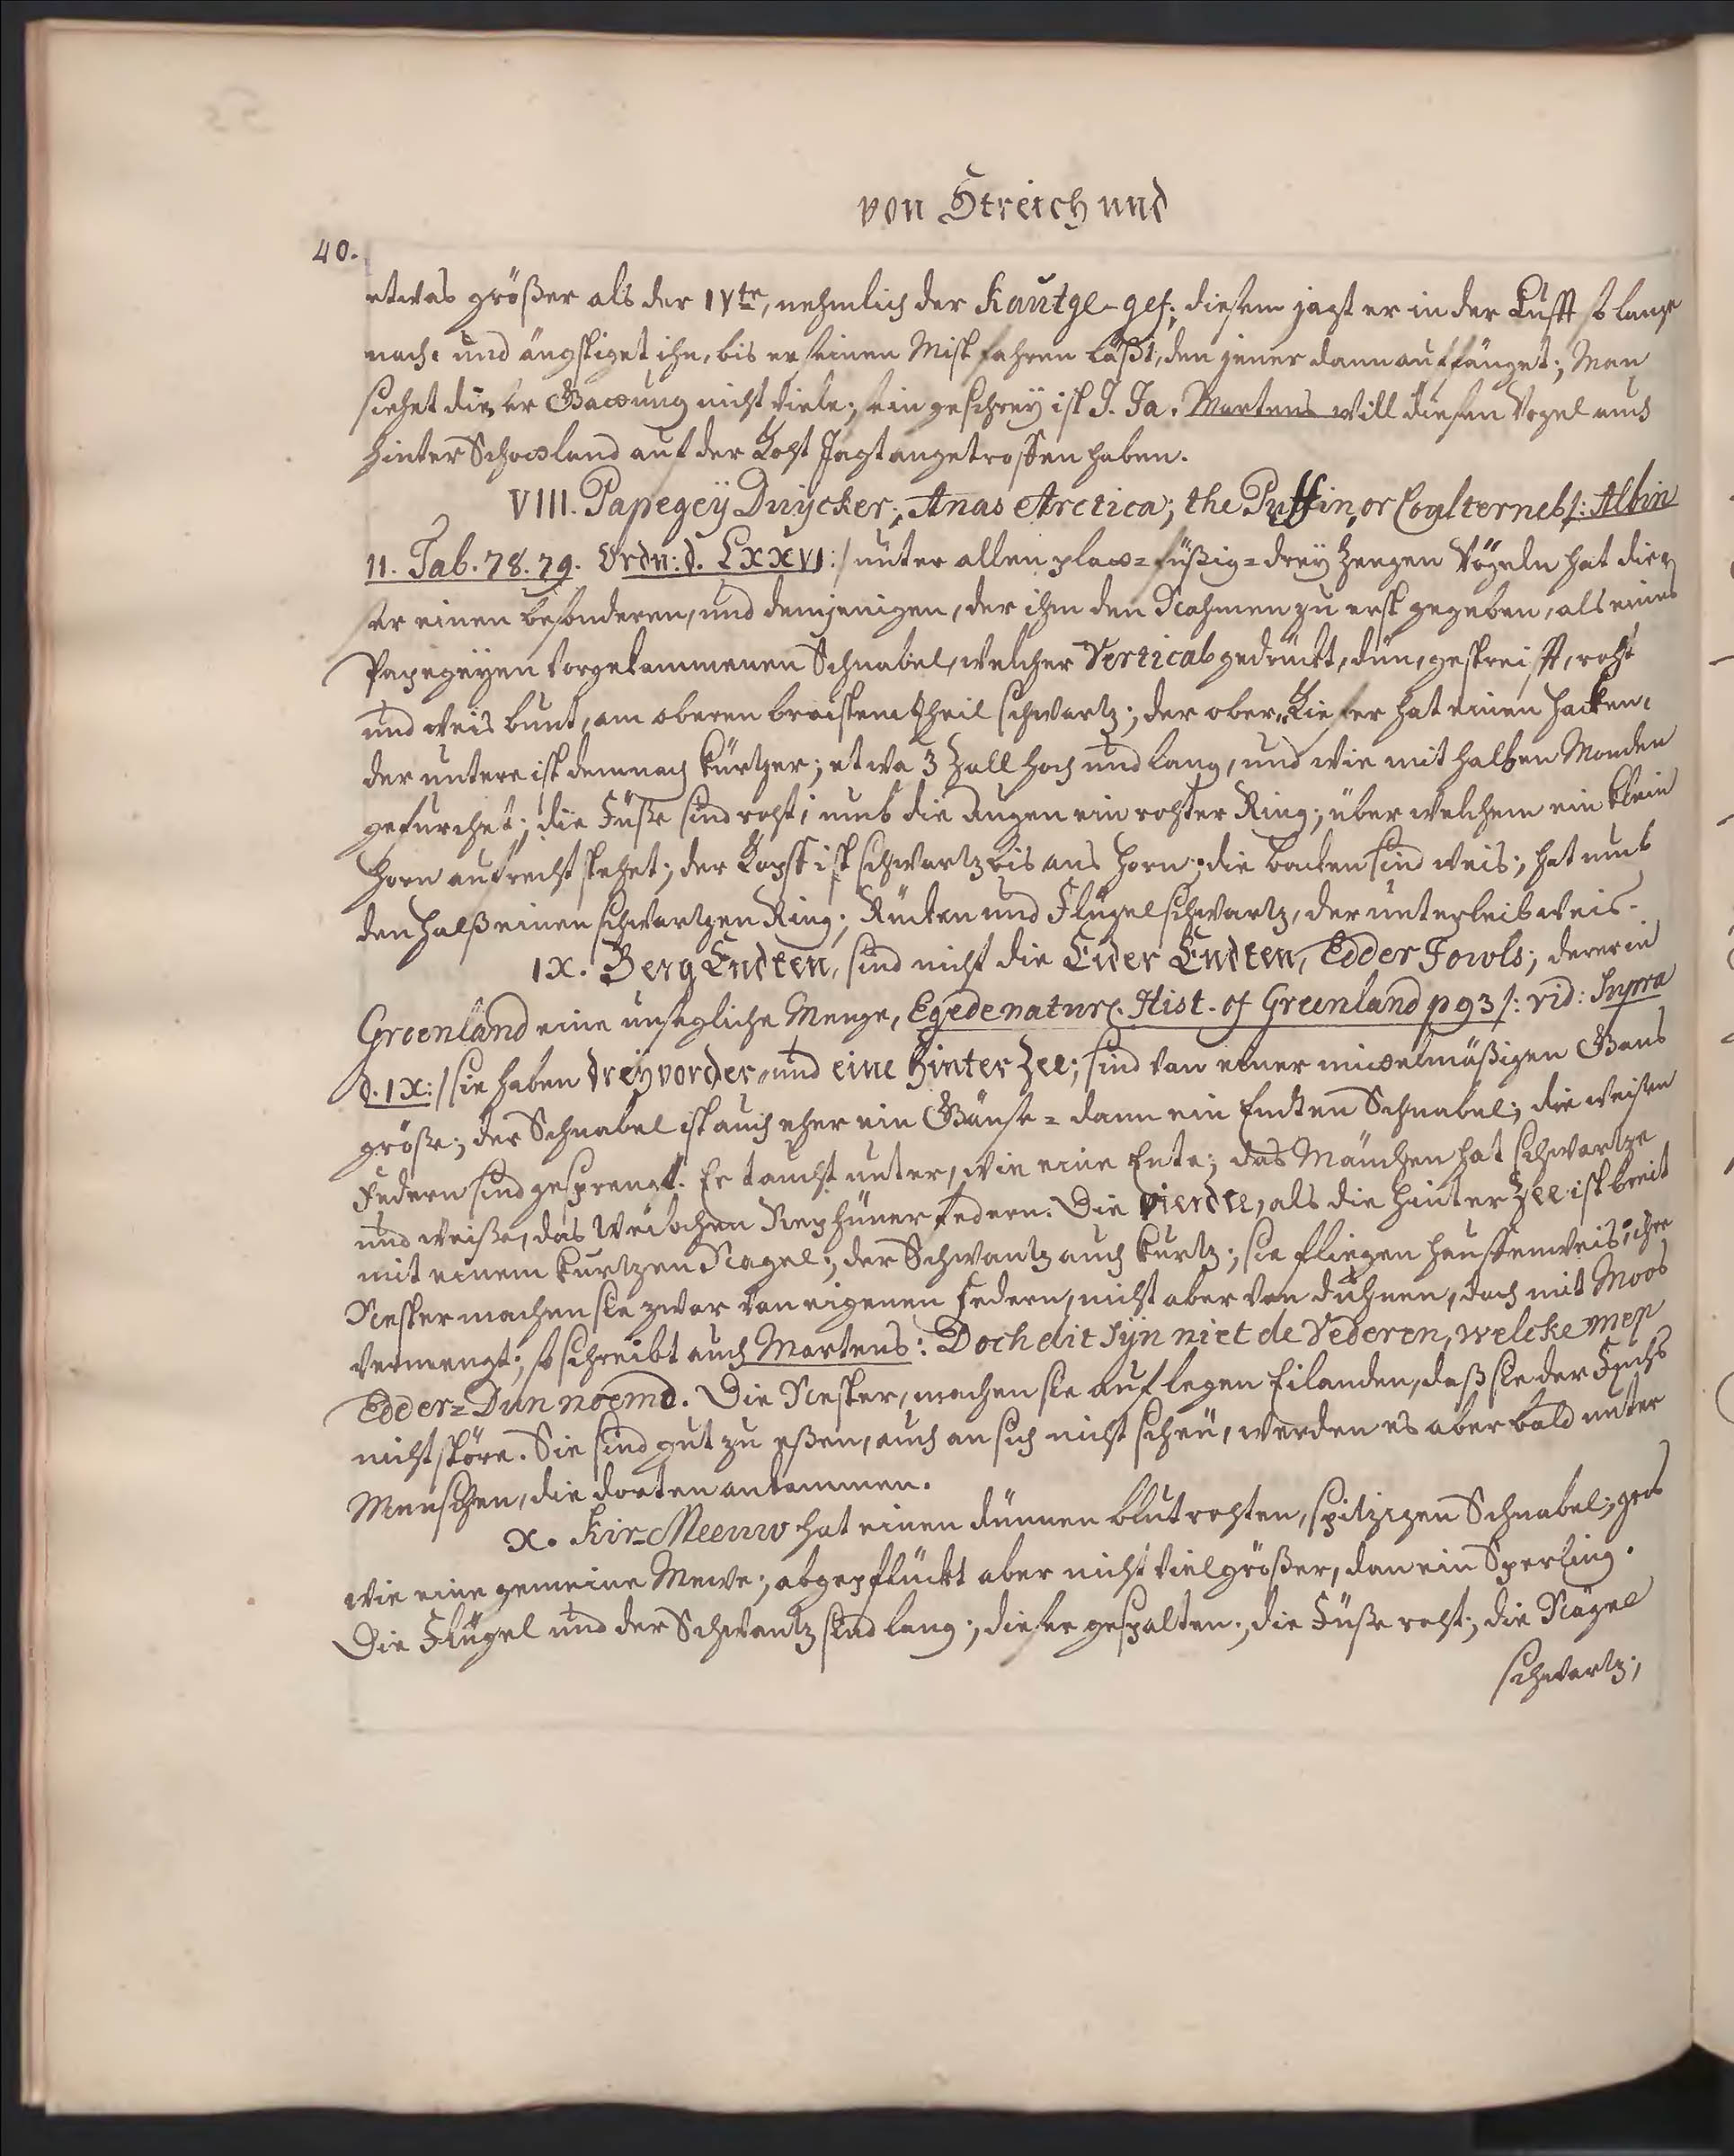 von Streich und
40.
etwas größer als der IVte, nehmlich der Kautge-gef; diesem jagt er in der Lufft so lange
nach: und ängstiget ihn, bis er seinen Mist fahren läßt, den jener dann auffänget; Man
siehet dieser Gattung nicht viele; sein geschrey ist I. Ja. Martens will diesen Vogel auch
hinter Schottland auf der Kost Jagt angetroffen haben.
VIII. Papegeÿ Duÿcker; Anas Arctica; the Puffin, or Coulterneb /: Albin
II. Tab. 78. 79. Ordn: d. LXXVI :/ unter allen platt-füßig-drey Zeegen Vögeln hat die-
ser einen besonderen, und demjenigen, der ihm den Nahmen zu erst gegeben, als eines
Papegeyen vorgekommenen Schnabel, welcher Vertical gedrückt, dün, gestreifft, roht
und weis bunt, am oberen breitstem theil schwartz; der ober-Kiefer hat einen Hacken,
der untere ist demnach kürtzer; etwa 3 Zoll hoch und lang, und wie mit halben Monden
gefurchet; die Füße sind roht; umb die Augen ein rohter Ring; über welchem ein klein
Horn aufrecht stehet; der Kopff ist schwartz bis ans Horn; die backen sind weis; hat umb
den Halß einen schwartzen Ring; Rücken und Flügel schwartz, der unterleib weis.
IX. Berg Endten, sind nicht die Eider Endten, Edder Fowls; derer in
Groenland eine unsegliche Menge, Egede natur. Hist. of Greenland p 93 /: vid: Supra
d. IX: / sie haben dreÿ vorder- und eine hinter Zee; sind von einer mittelmäßigen Gans
größe; der Schnabel ist auch eher ein Gänse- dann ein Endten Schnabel; die weisen
Federn sind gesprengt. Er taucht unter, wie eine Ente; das Mänchen hat schwartze
und weiße, das Weibchen Rephüner federn. Die vierdte, als die hinter Zee ist breit
mit einem kurtzen Nagel; der Schwantz auch kurtz; sie fliegen hauffenweis; ihre
Nester machen sie zwar von eigenen Federn, nicht aber von duhnen, doch mit Moos
vermengt; so schreibt auch Martens: Doch dit sÿn niet de Vederen, welcke men
Edder-Dun noemd. Die Nester, machen sie auf legen Eilanden, daß sie der Fuchs
nicht störe. Sie sind gut zu eßen, auch an sich nicht scheu, werden es aber bald unter
Menschen, die dorten ankommen.
X. Kir-Meeuw hat einen dünnen blutrohten, spitzigen Schnabel; gros
wie eine gemeine Mewe; abgepflückt aber nicht viel größer, dan ein Sperling.
Die Flügel und der Schwantz sind lang; dieser gespalten; die Füße roht; die Nägel
schwartz;